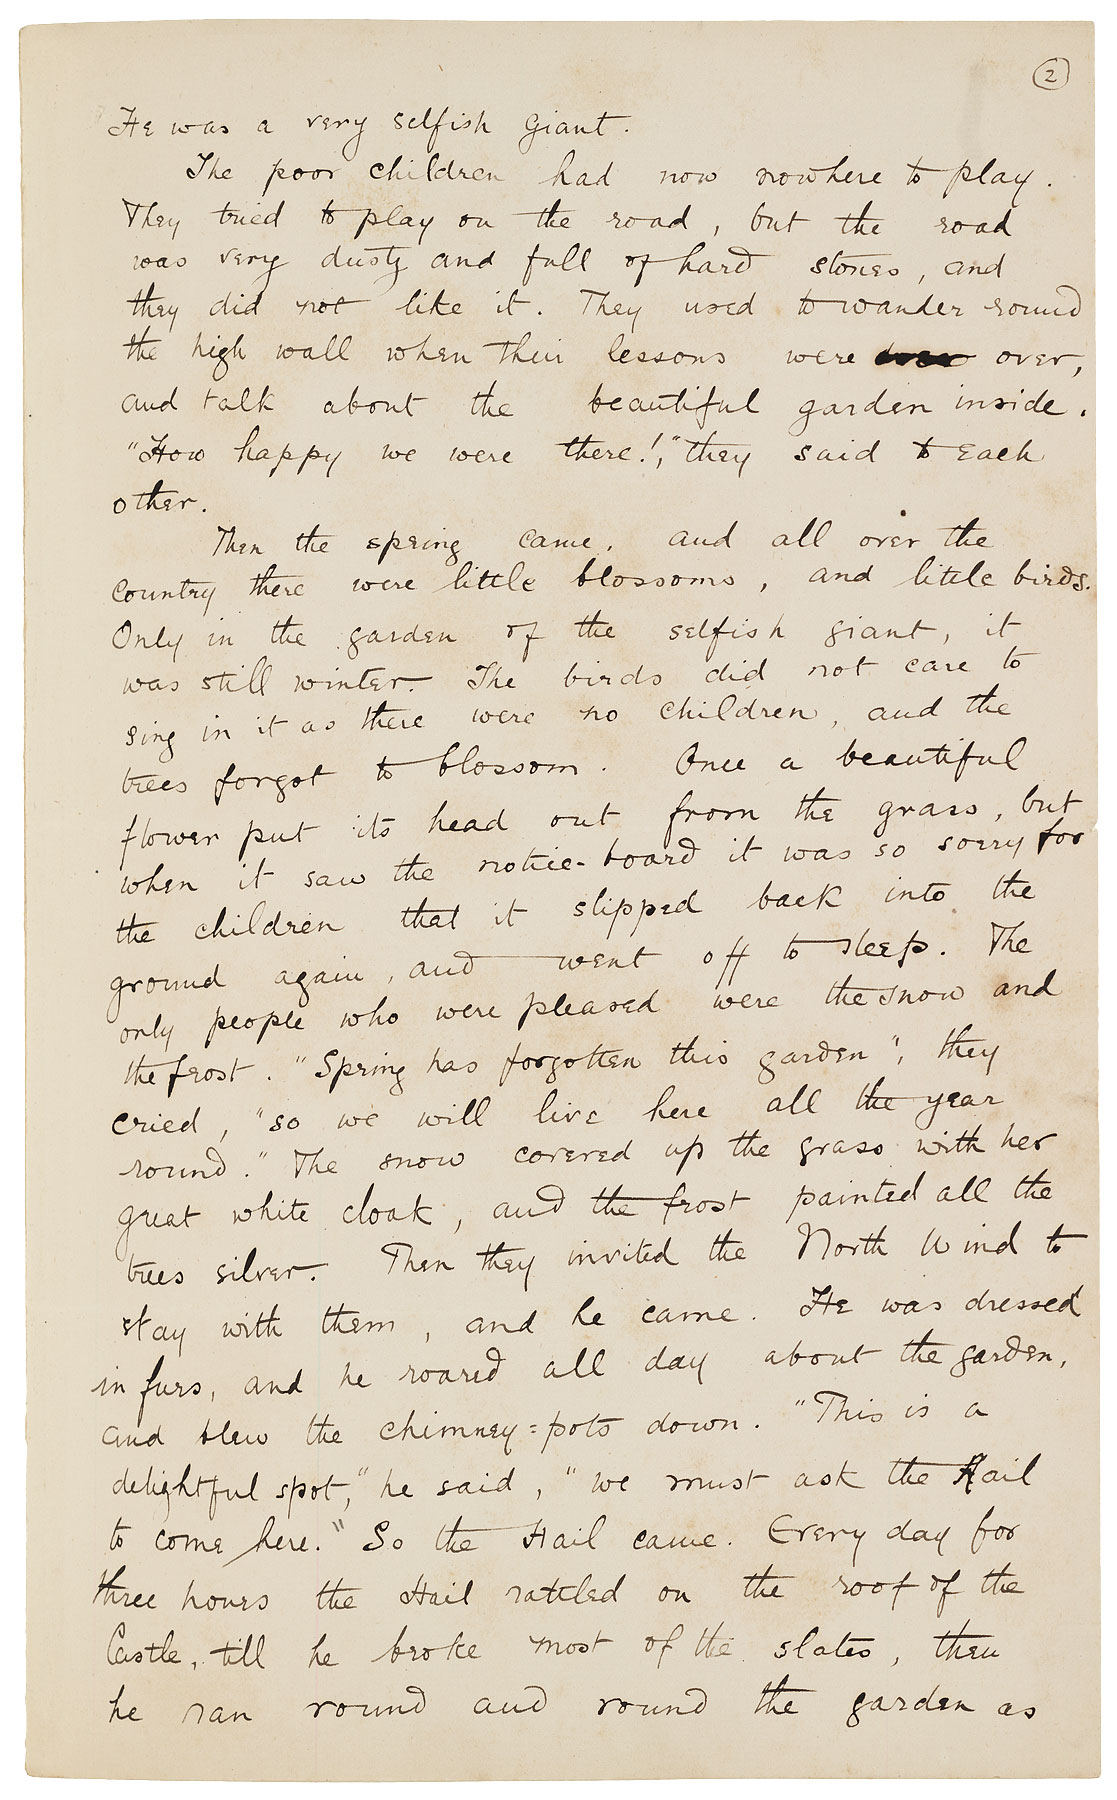 2
He was a very selfish Giant.
The poor children had now nowhere to play.
They tried to play on the road, but the road
was very dusty and full of hard stones, and
they did not like it. They used to wander round
the high wall when their lessons were over,
and talk about the beautiful garden inside.
"How happy we were there!," they said to each
other.
Then the spring came, and all over the
country there were little blossoms, and little birds.
Only in the garden of the selfish giant, it
was still winter. The birds did not care to
sing in it as there were no children, and the
trees forgot to blossom. Once a beautiful
flower put its head out from the grass, but
when it saw the notice-board it was so sorry for
the children that it slipped back into the
ground again, and went off to sleep. The
only people who were pleased were the snow and
the frost. "Spring has forgotten this garden", they
cried, "so we will live here all the year
round." The snow covered up the grass with her
great white cloak, and the frost painted all the
trees silver. Then they invited the North Wind to
stay with them, and he came. He was dressed
in furs, and he roared all day about the garden,
and blew the chimney=pots down. "This is a
delightful spot," he said, "we must ask the Hail
to come here." So the Hail came. Every day for
three hours the Hail rattled on the roof of the
Castle, till he broke most of the slates, then
he ran round and round the garden as